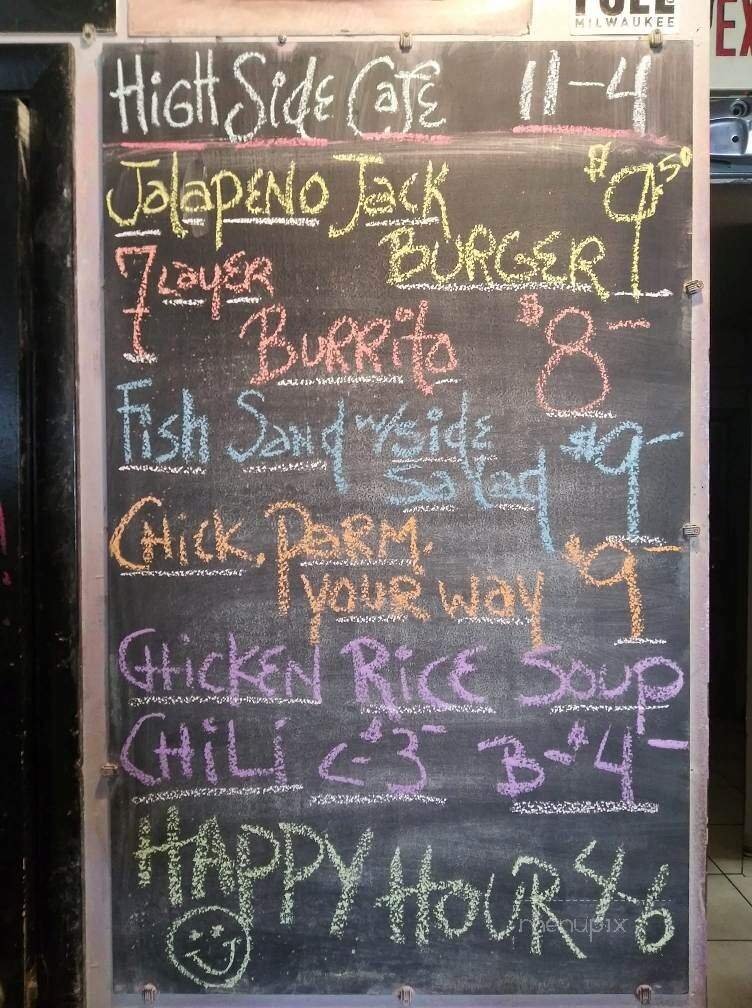 MILWAUKEE
HiGH Side CaFE 11-4
JalapENO Jack $9.50
BURGER
7 LayER
BURRito $8-
Fish Sand w/side
Salad $9-
CHiCK. PaRM.
YOUR Way $9-
CHiCKEN RiCE Soup
CHiLi C-$3- B-$4-
HAPPY HOUR 4-6
menupix